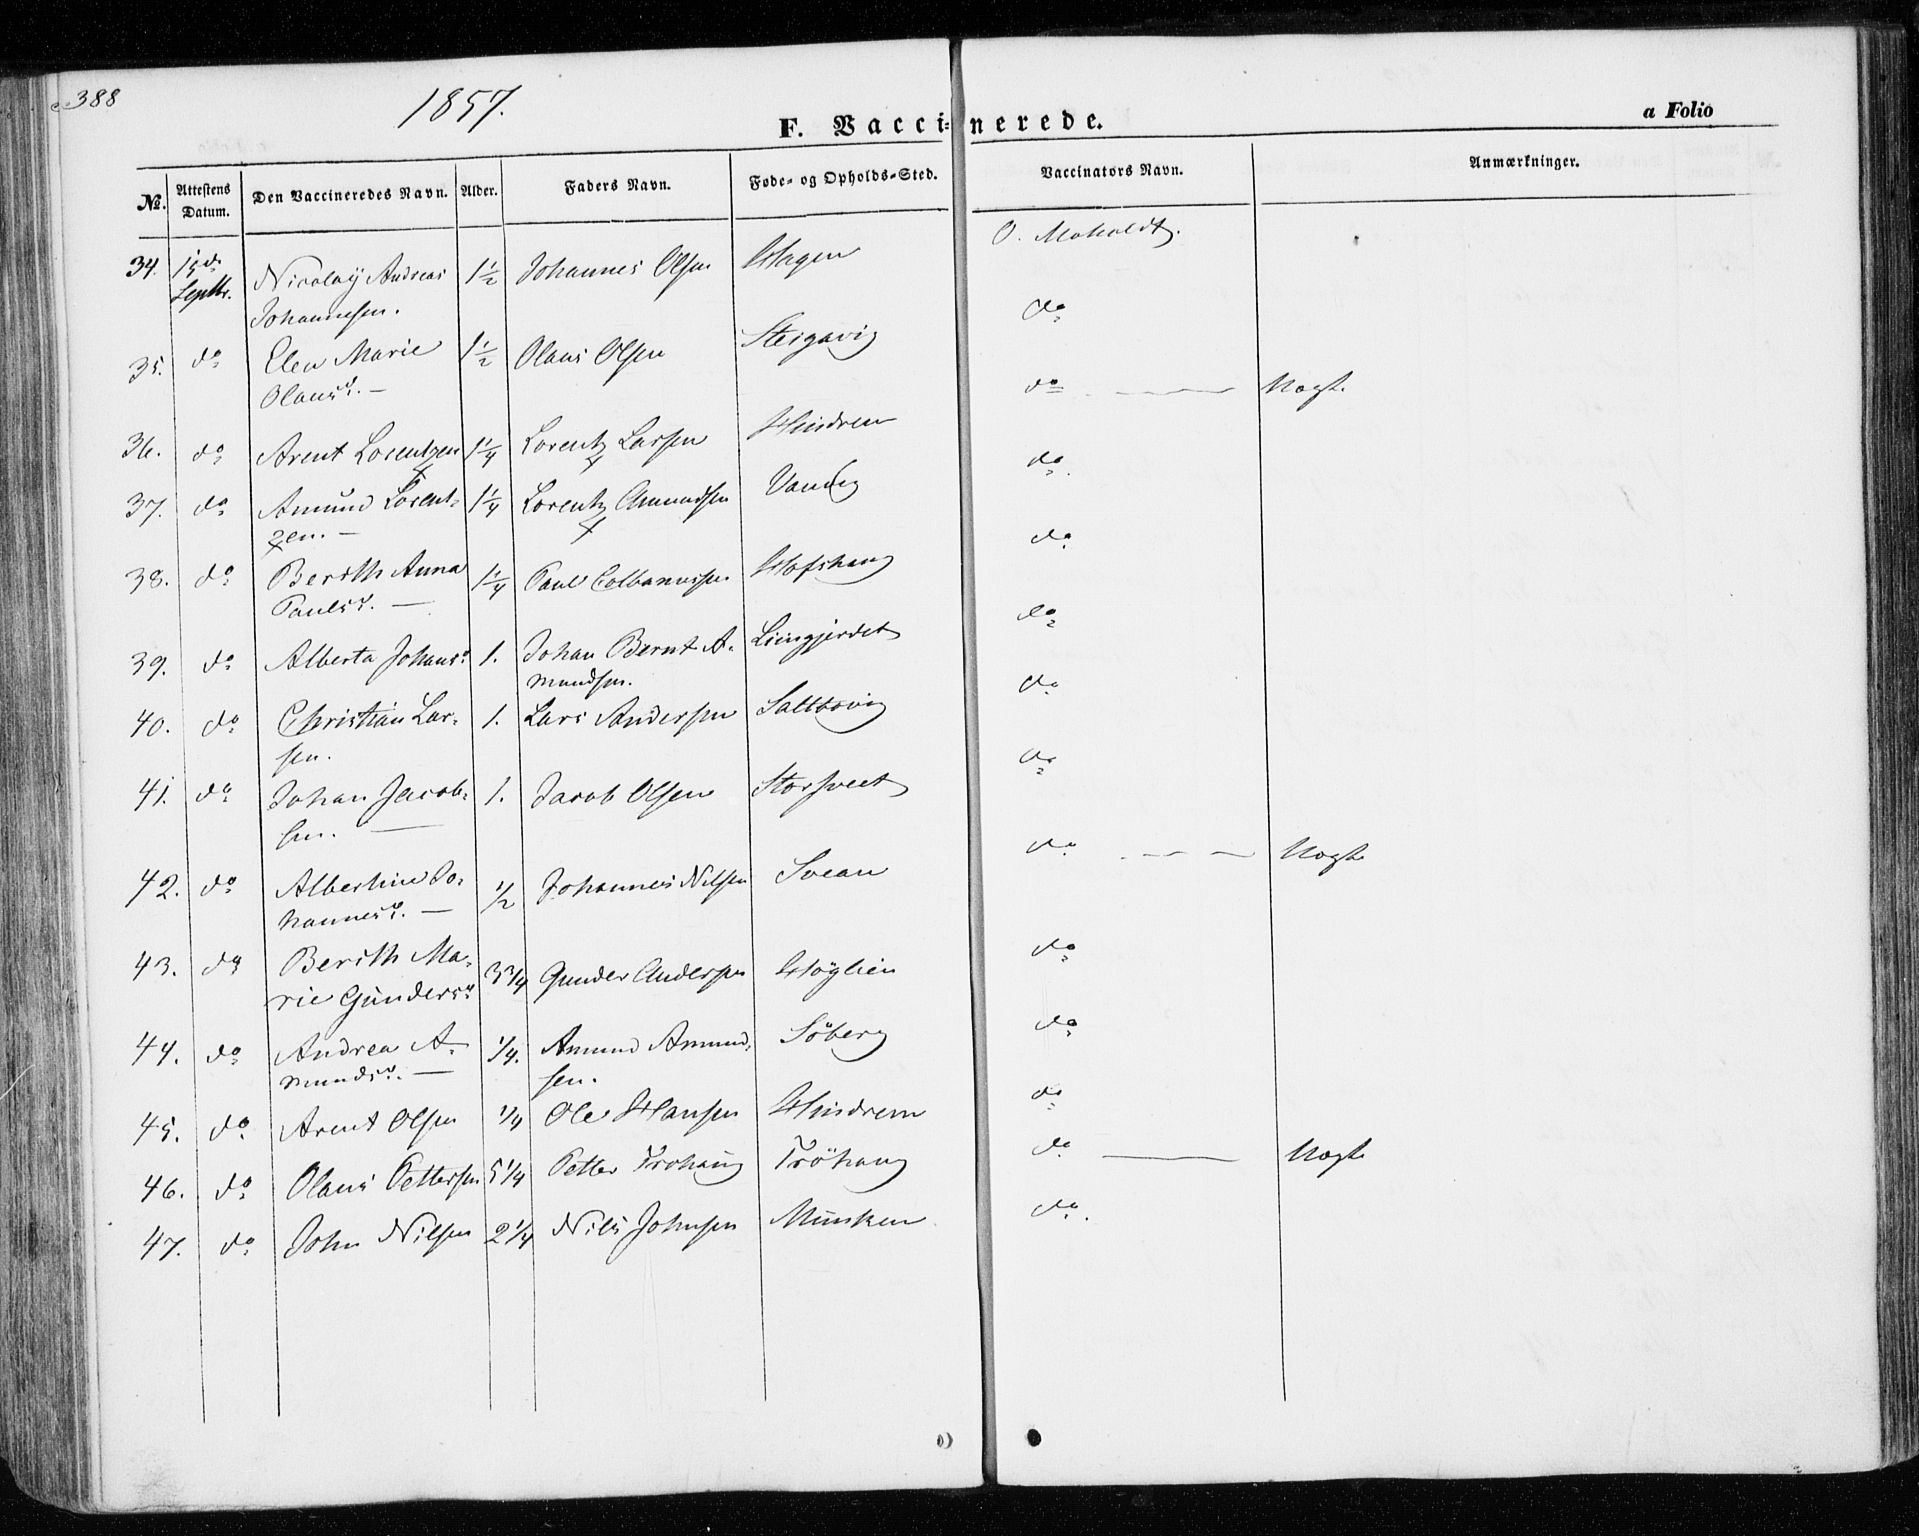 388
1857.
F. Vaccinerede.
a Folio
No. Attestens Datum. Den Vaccineredes Navn. Alder. Faders Navn. Føde- og Opholds-Sted. Vaccinators Navn. Anmærkninger.
34. 15de Septbr. Nicolaij Andreas 1 1/2 Johannes Olsen Hagen O. Moholdt.
Johannesen.
35. do Elen Marie 1 1/2 Olaus Olsen Steigavig do
Olausd. —
36. do Arent Lorentzen 1 1/4 Lorentz Larsen Hindrem do — Nogle
37. do Amund Lorent- 1 1/4 Lorentz Amundsen Vandvg do.
zen. —
38. do Berith Anna 1 1/4 Paul Colbanussen Hofshaug do
Paulsd. —
39. do Alberta Johansd. 1. Johan Bernt A- Liengjerdet do
mundsen.
40. do Christian Lar- 1. Lars Andersen Saltbovig do
sen.
41. do Johan Jacob- 1. Jacob Olsen Storsveet do
sen. —
42. do Albertine Jo- 1/2 Johannes Nilsen Svean do — Nogle
hannesd. —
43. do Berith Ma- 3 3/4 Gunder Andersen Høglien do
rie Gundersd.
44. do Andrea A- 1/4. Amund Amund- Søberg do
mundsd. — sen.
45. do Arent Olsen 1/4 Ole Hansen Hindrem do
46. do Olaus Pettersen 5 1/4 Petter Trøhaug Trøhaug do — Nogle
47. do John Nilsen 2 1/4 Nils Johnsen Munken do.